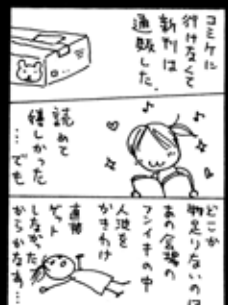 コミケに
行けなくて
新刊は
通販した。
読めて
嬉しかった
…でも
どこか
物足りないのは
あの会場の
フンイキの中
人波を
かきわけ
直接
ゲット
しなかった
からかなぁ…